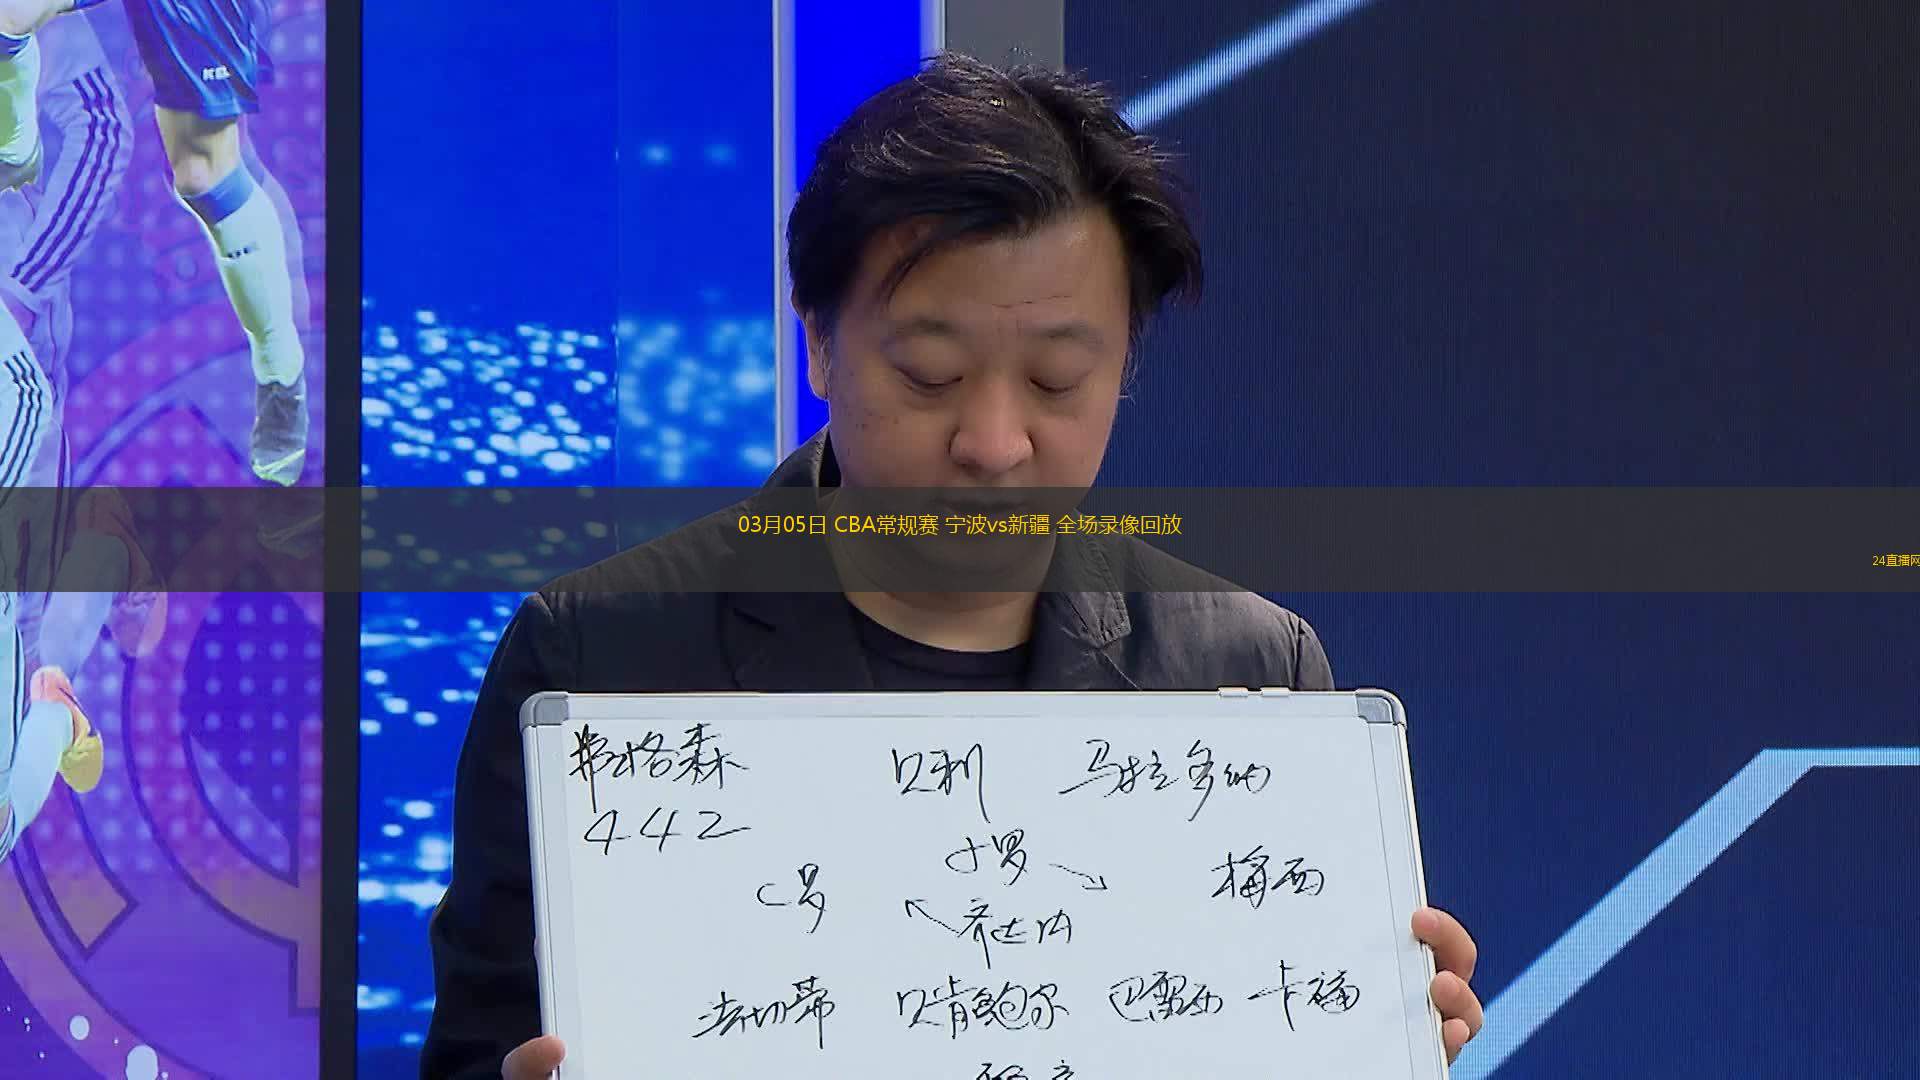 03月05日 CBA常规赛 宁波vs新疆 全场录像回放
24直播网
弗格森 贝利 马拉多纳
442
小罗
C罗 梅西
齐达内
法切蒂 贝肯鲍尔 巴雷西 卡福